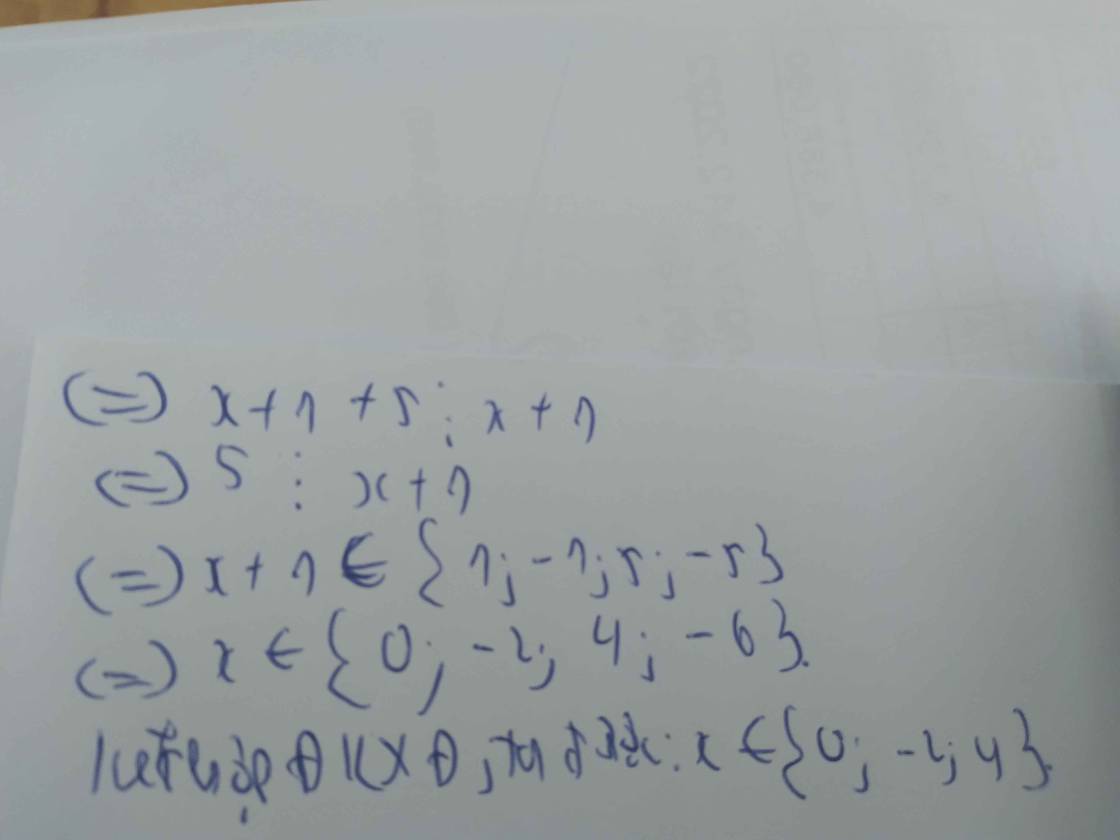 (=) x+1+5 ⋮ x+1
(=) 5 ⋮ x+1
(=) x+1 ∈ {1; -1; 5; -5}
(=) x ∈ {0; -2; 4; -6}.
kết hợp ĐKXĐ, ta được: x ∈ {0; -2; 4}.